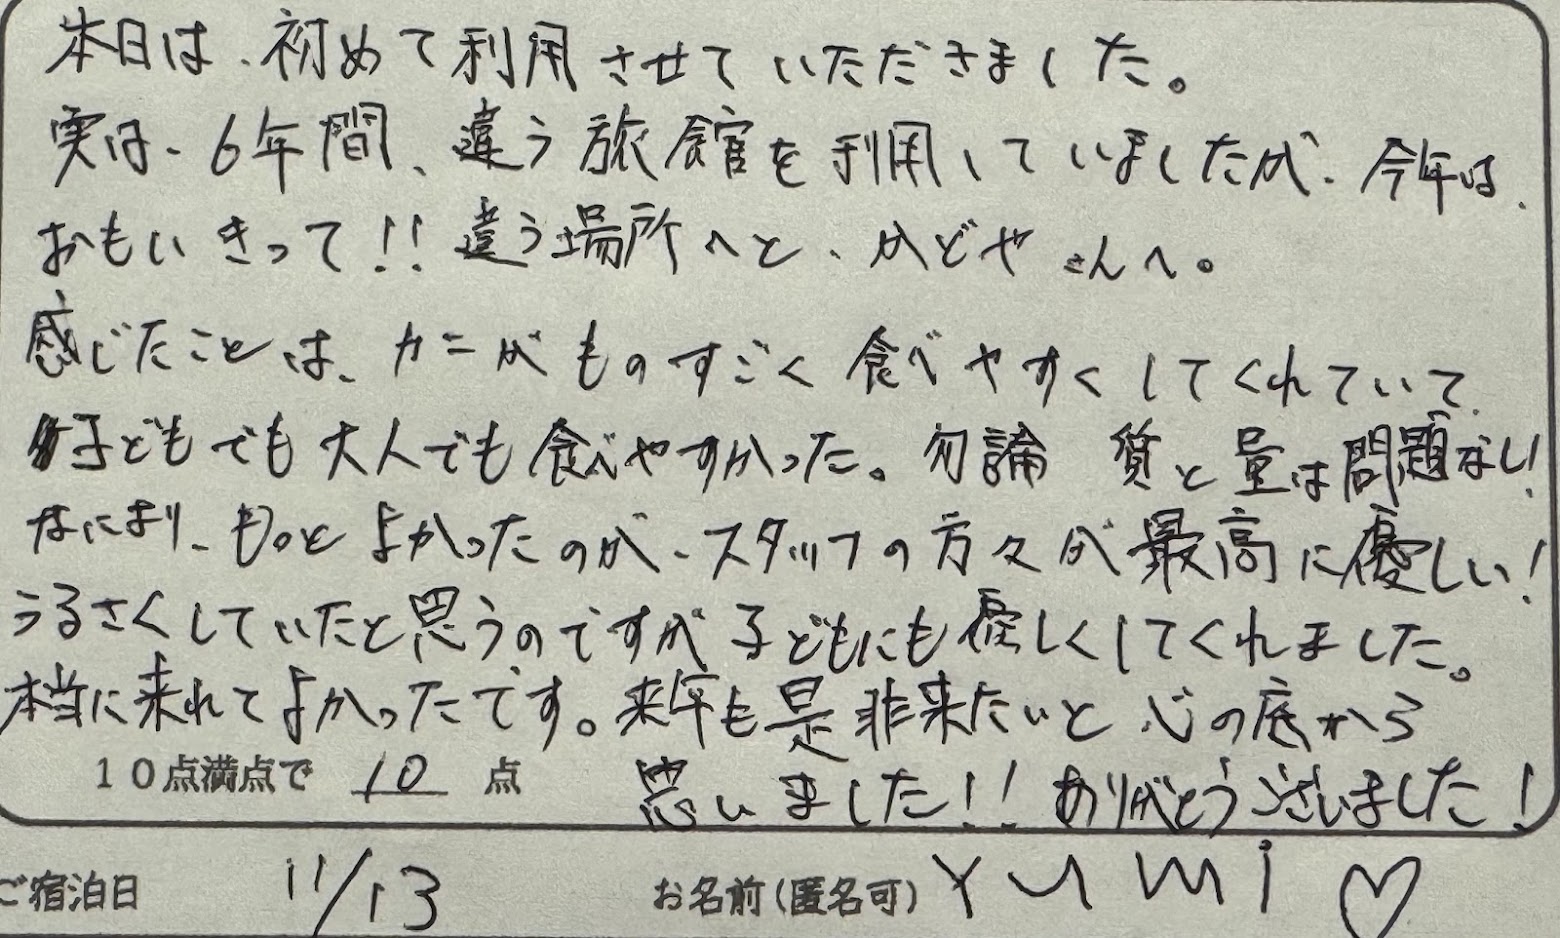 本日は、初めて利用させていただきました。
実は、6年間、違う旅館を利用していましたが、今年は、
おもいきって!!違う場所へと、かどやさんへ。
感じたことは、カニがものすごく食べやすくしてくれていて、
子どもでも大人でも食べやすかった。勿論 質と量は問題なし!
なにより、もっとよかったのが、スタッフの方々が最高に優しい!
うるさくしていたと思うのですが子どもにも優しくしてくれました。
本当に来れてよかったです。来年も是非来たいと心の底から
10点満点で 10 点 思いました!!ありがとうございました!
ご宿泊日 11/13 お名前(匿名可) Yumi♡